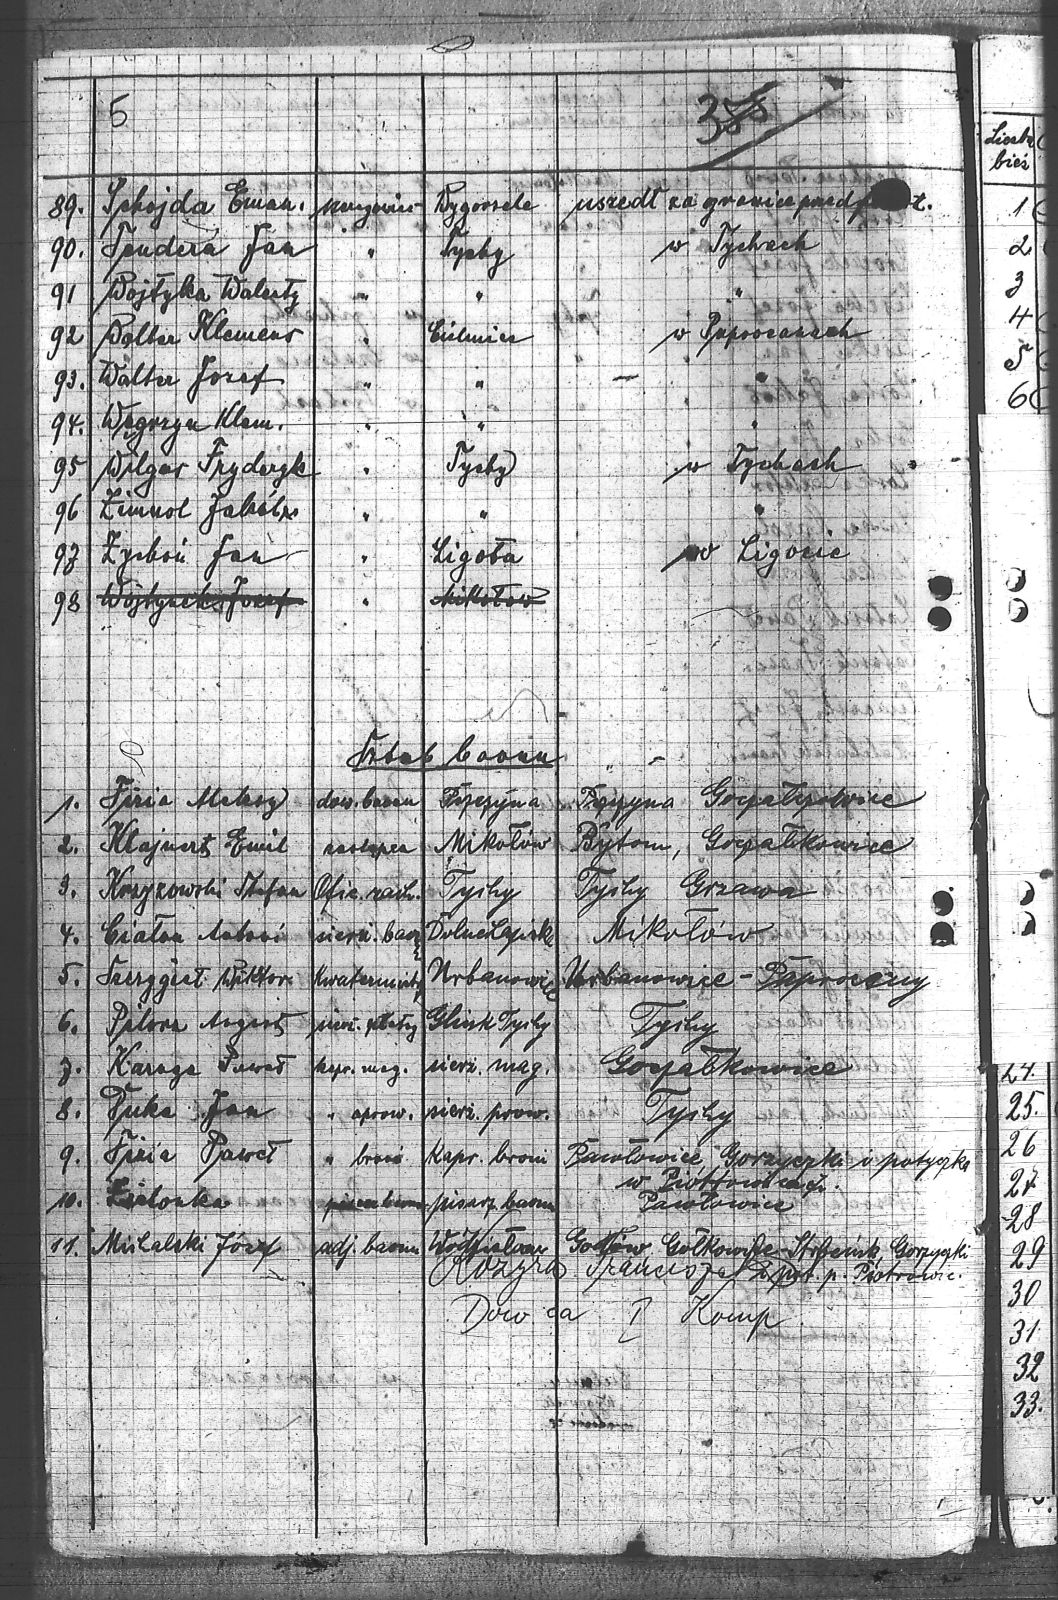 5 358
89. Eman. uszedł za granicę przed
90. Jan " Tychy w Tychach
91 Wojtyka Walenty " " "
92 Walter Klemens " Cielmice w Paprocanach
93. Walter Jozef " " — "
94. Węgrzyn Klem. " " "
95 Wilgas Fryderyk " Tychy w Tychach
96 Zimnol Jakób " " "
97 Zychoń Jan " Ligota w Ligocie
98 Wojtyczek Jozef " Mikołów
Sztab baonu
1. Fizia Maksy dow. baonu Pszczyna Pszczyna Goczałkowice
2. Klajnert Emil zastępca Mikołów Bytom, Goczałkowice
3. Krzyżowski Stefan Ofic. rach. Tychy Tychy Grzawa
4. Antoni sierż. baonu Dolne Łaziska Mikołów
5. Wiktor Kwatermistrz Urbanowice Urbanowice - Paprocany
6. August sierż. Glink Tychy Tychy
7. Paweł kapr. mag. sierż. mag. Goczałkowice
8. Puka Jan " aprow. sierż. prow. Tychy
9. Fizia Paweł " broni Kapr. broni Pawłowice Gorzyczki i potyczka
w Piotrowicach.
10. Zielonka pisarz baonu Pawłowice
11. Michalski Józef adj. baonu Godów Gołkowice Gorzyczki
Kozyra Franciszek p. Piotrowic.
Dow ca I Komp
Liczba
bież
1
2
3
4
5
6
24.
25.
26
27.
28
29
30
31.
32
33.